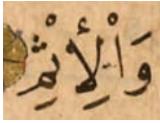 وَاْلْإِثْمِ